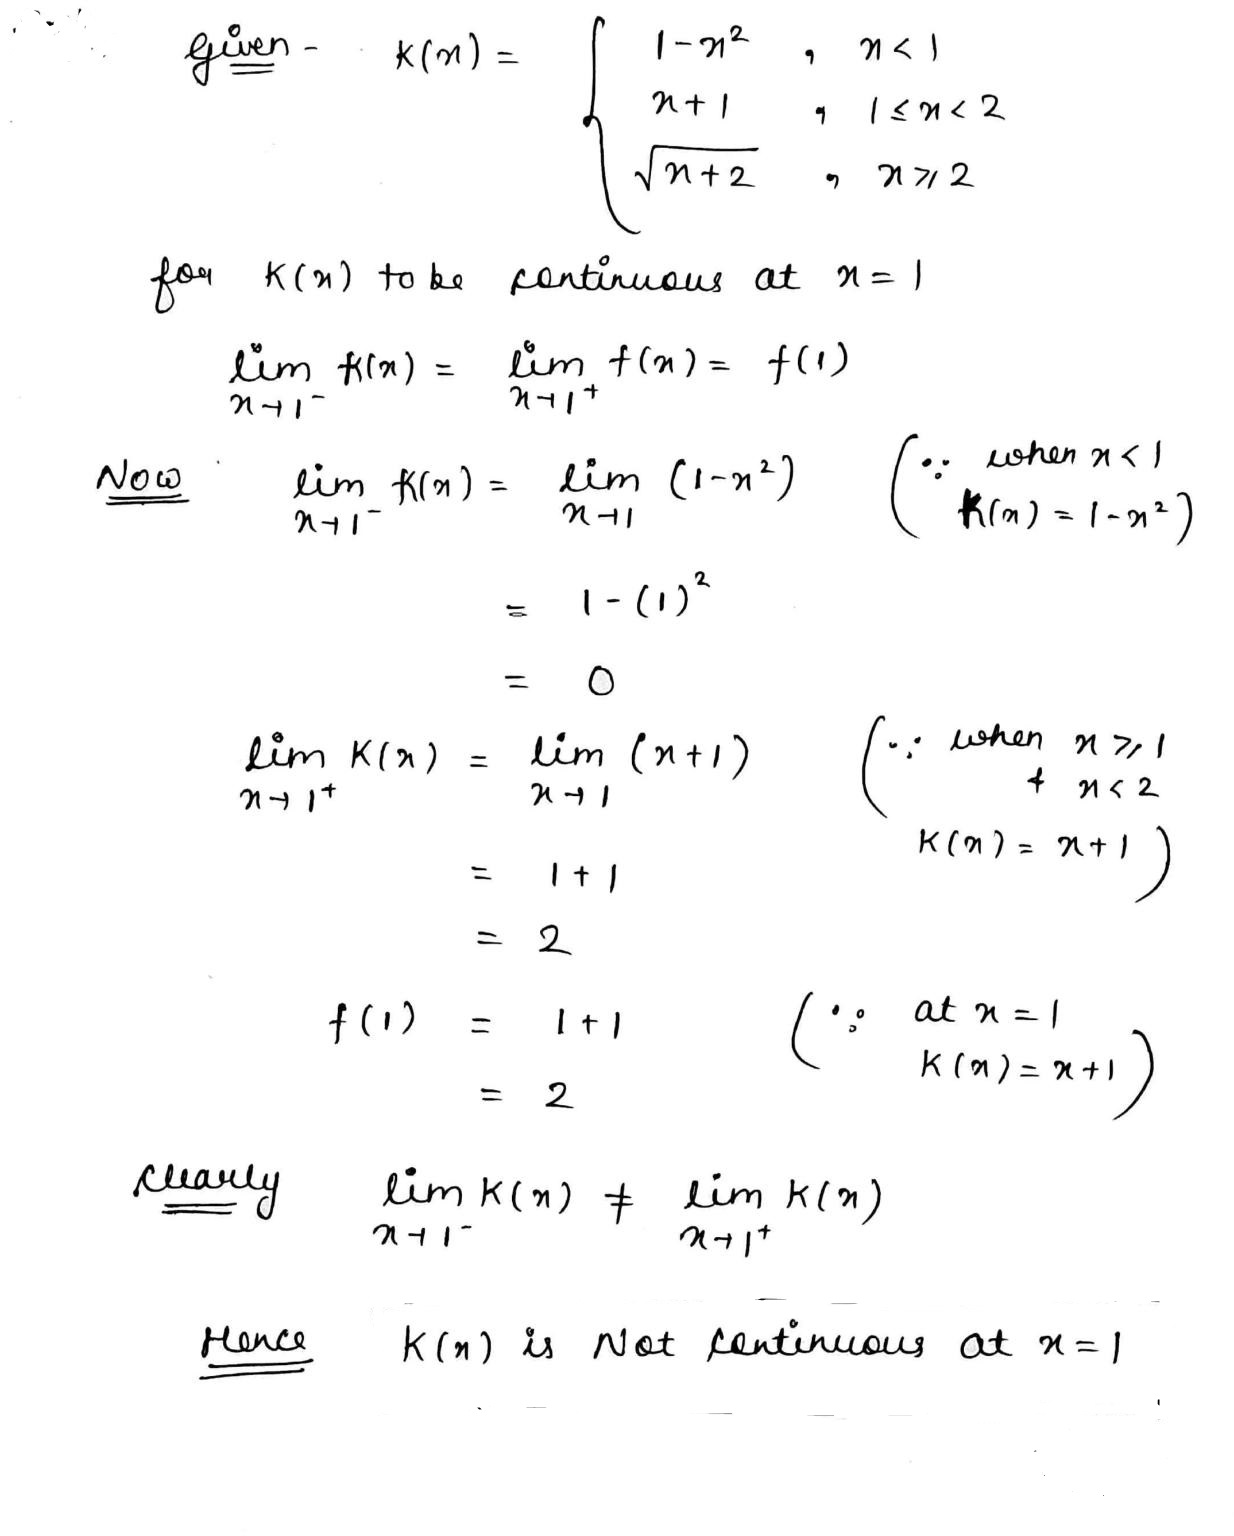 Given - K(x) = { 1-x² , x < 1
x+1 , 1 ≤ x < 2
√x+2 , x ≥ 2
for K(x) to be continuous at x = 1
lim K(x) = lim f(x) = f(1)
x→1⁻ x→1⁺
Now lim K(x) = lim (1-x²) (∵ when x < 1
x→1⁻ x→1 K(x) = 1-x²)
= 1-(1)²
= 0
lim K(x) = lim (x+1) (∵ when x ≥ 1
x→1⁺ x→1 & x < 2
K(x) = x+1)
= 1+1
= 2
f(1) = 1+1 (∵ at x = 1
K(x) = x+1)
= 2
Clearly lim K(x) ≠ lim K(x)
x→1⁻ x→1⁺
Hence K(x) is Not continuous at x = 1